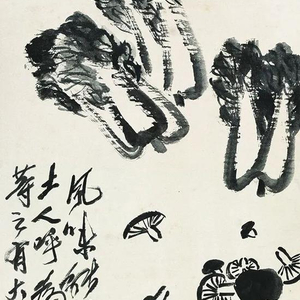 風味
土人呼為
之有大